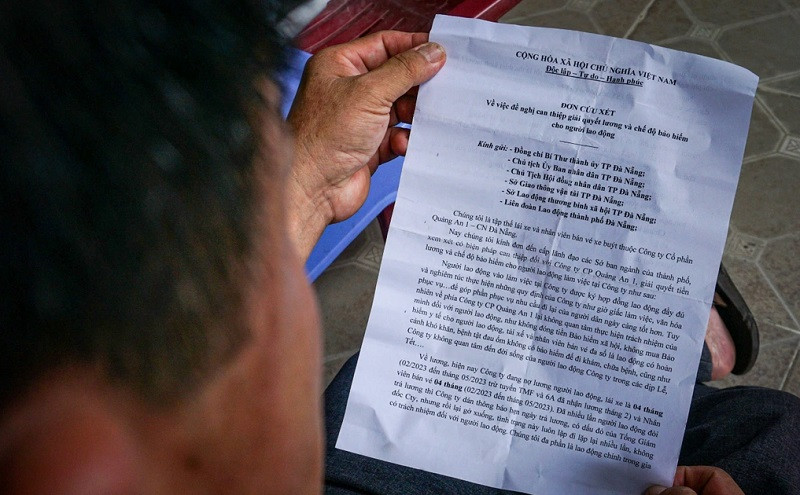 CỘNG HÒA XÃ HỘI CHỦ NGHĨA VIỆT NAM
Độc lập – Tự do – Hạnh phúc
ĐƠN CỨU XÉT
Về việc đề nghị can thiệp giải quyết lương và chế độ bảo hiểm
cho người lao động
Kính gửi: - Đồng chí Bí Thư thành ủy TP Đà Nẵng;
- Chủ tịch Ủy Ban nhân dân TP Đà Nẵng;
- Chủ Tịch Hội đồng nhân dân TP Đà Nẵng;
- Sở Giao thông vận tải TP Đà Nẵng;
- Sở Lao động thương binh xã hội TP Đà Nẵng;
- Liên đoàn Lao động thành phố Đà Nẵng;
Chúng tôi là tập thể lái xe và nhân viên bán vé xe buýt thuộc Công ty Cổ phần
Quảng An 1 – CN Đà Nẵng.
Nay chúng tôi kính đơn đến cấp lãnh đạo các Sở ban ngành của thành phố,
xem xét có biện pháp can thiệp đối với Công ty CP Quảng An 1, giải quyết tiền
lương và chế độ bảo hiểm cho người lao động làm việc tại Công ty như sau:
Người lao động vào làm việc tại Công ty được ký hợp đồng lao động đầy đủ
và nghiêm túc thực hiện những quy định của Công ty như giờ giấc làm việc, văn hóa
phục vụ… để góp phần phục vụ nhu cầu đi lại của người dân ngày càng tốt hơn. Tuy
nhiên về phía Công ty CP Quảng An 1 lại không quan tâm thực hiện trách nhiệm của
mình đối với người lao động, như không đóng tiền Bảo hiểm xã hội, không mua Bảo
hiểm y tế cho người lao động, tài xế và nhân viên bán vé đa số là lao động có hoàn
cảnh khó khăn, bệnh tật đau ốm không có bảo hiểm để đi khám, chữa bệnh, cũng như
Công ty không quan tâm đến đời sống của người lao động Công ty trong các dịp Lễ,
Tết….
Về lương, hiện nay Công ty đang nợ lương người lao động, lái xe là 04 tháng
(02/2023 đến tháng 05/2023 trừ tuyến TMF và 6A đã nhận lương tháng 2) và Nhân
viên bán vé 04 tháng (02/2023 đến tháng 05/2023). Đã nhiều lần người lao động đòi
trả lương thì Công ty dán thông báo hẹn ngày trả lương, có dấu đỏ của Tổng Giám
đốc Cty, nhưng rồi lại gỡ xuống, tình trạng này luôn lặp đi lặp lại nhiều lần, không
có trách nhiệm đối với người lao động. Chúng tôi đa phần là lao động chính trong gia